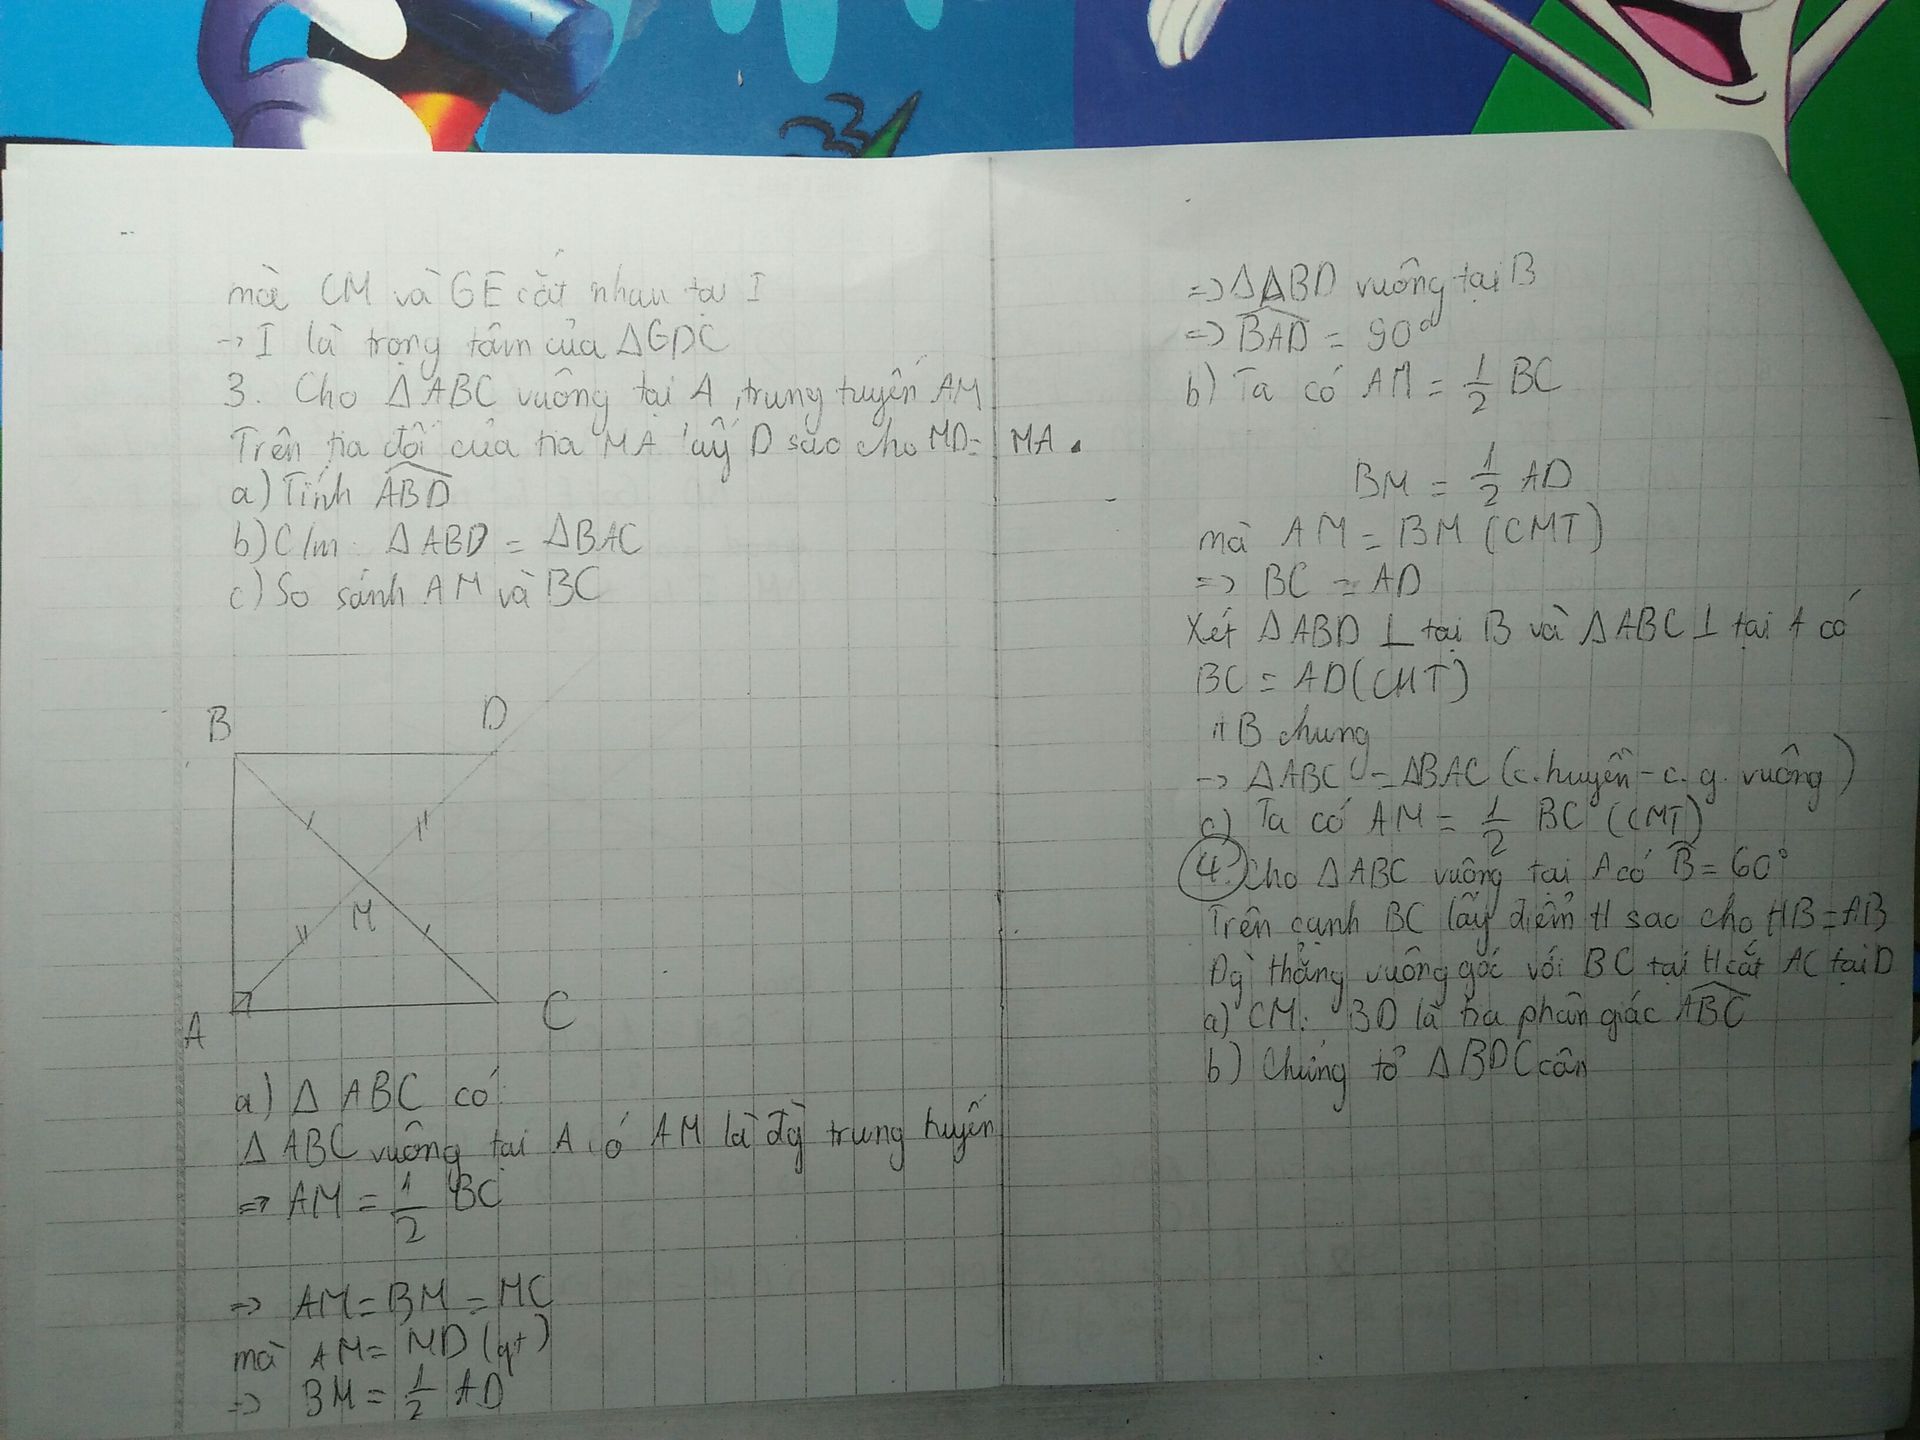 mà CM và GE cắt nhau tại I
-> I là trọng tâm của ΔGDC
3. Cho ΔABC vuông tại A, trung tuyến AM
Trên tia đối của tia MA lấy D sao cho MD = MA.
a) Tính ABD
b) C/m: ΔABD = ΔBAC
c) So sánh AM và BC
B
D
M
A
C
a) Δ ABC có:
Δ ABC vuông tại A, có AM là đg trung tuyến
=> AM = 1/2 BC
=> AM = BM = MC
mà AM = MD (gt)
=> BM = 1/2 AD
=> ΔABD vuông tại B
=> BAD = 90°
b) Ta có AM = 1/2 BC
BM = 1/2 AD
mà AM = BM (CMT)
=> BC = AD
Xét ΔABD ⊥ tại B và ΔABC ⊥ tại A có
BC = AD (CMT)
AB chung
-> ΔABC = ΔBAC (c.huyền - c.g. vuông)
c) Ta có AM = 1/2 BC (CMT)
4. Cho ΔABC vuông tại A có B = 60°
Trên cạnh BC lấy điểm H sao cho HB = AB
Đg thẳng vuông góc với BC tại H cắt AC tại D
a) CM: BD là tia phân giác ABC
b) Chứng tỏ ΔBDC cân